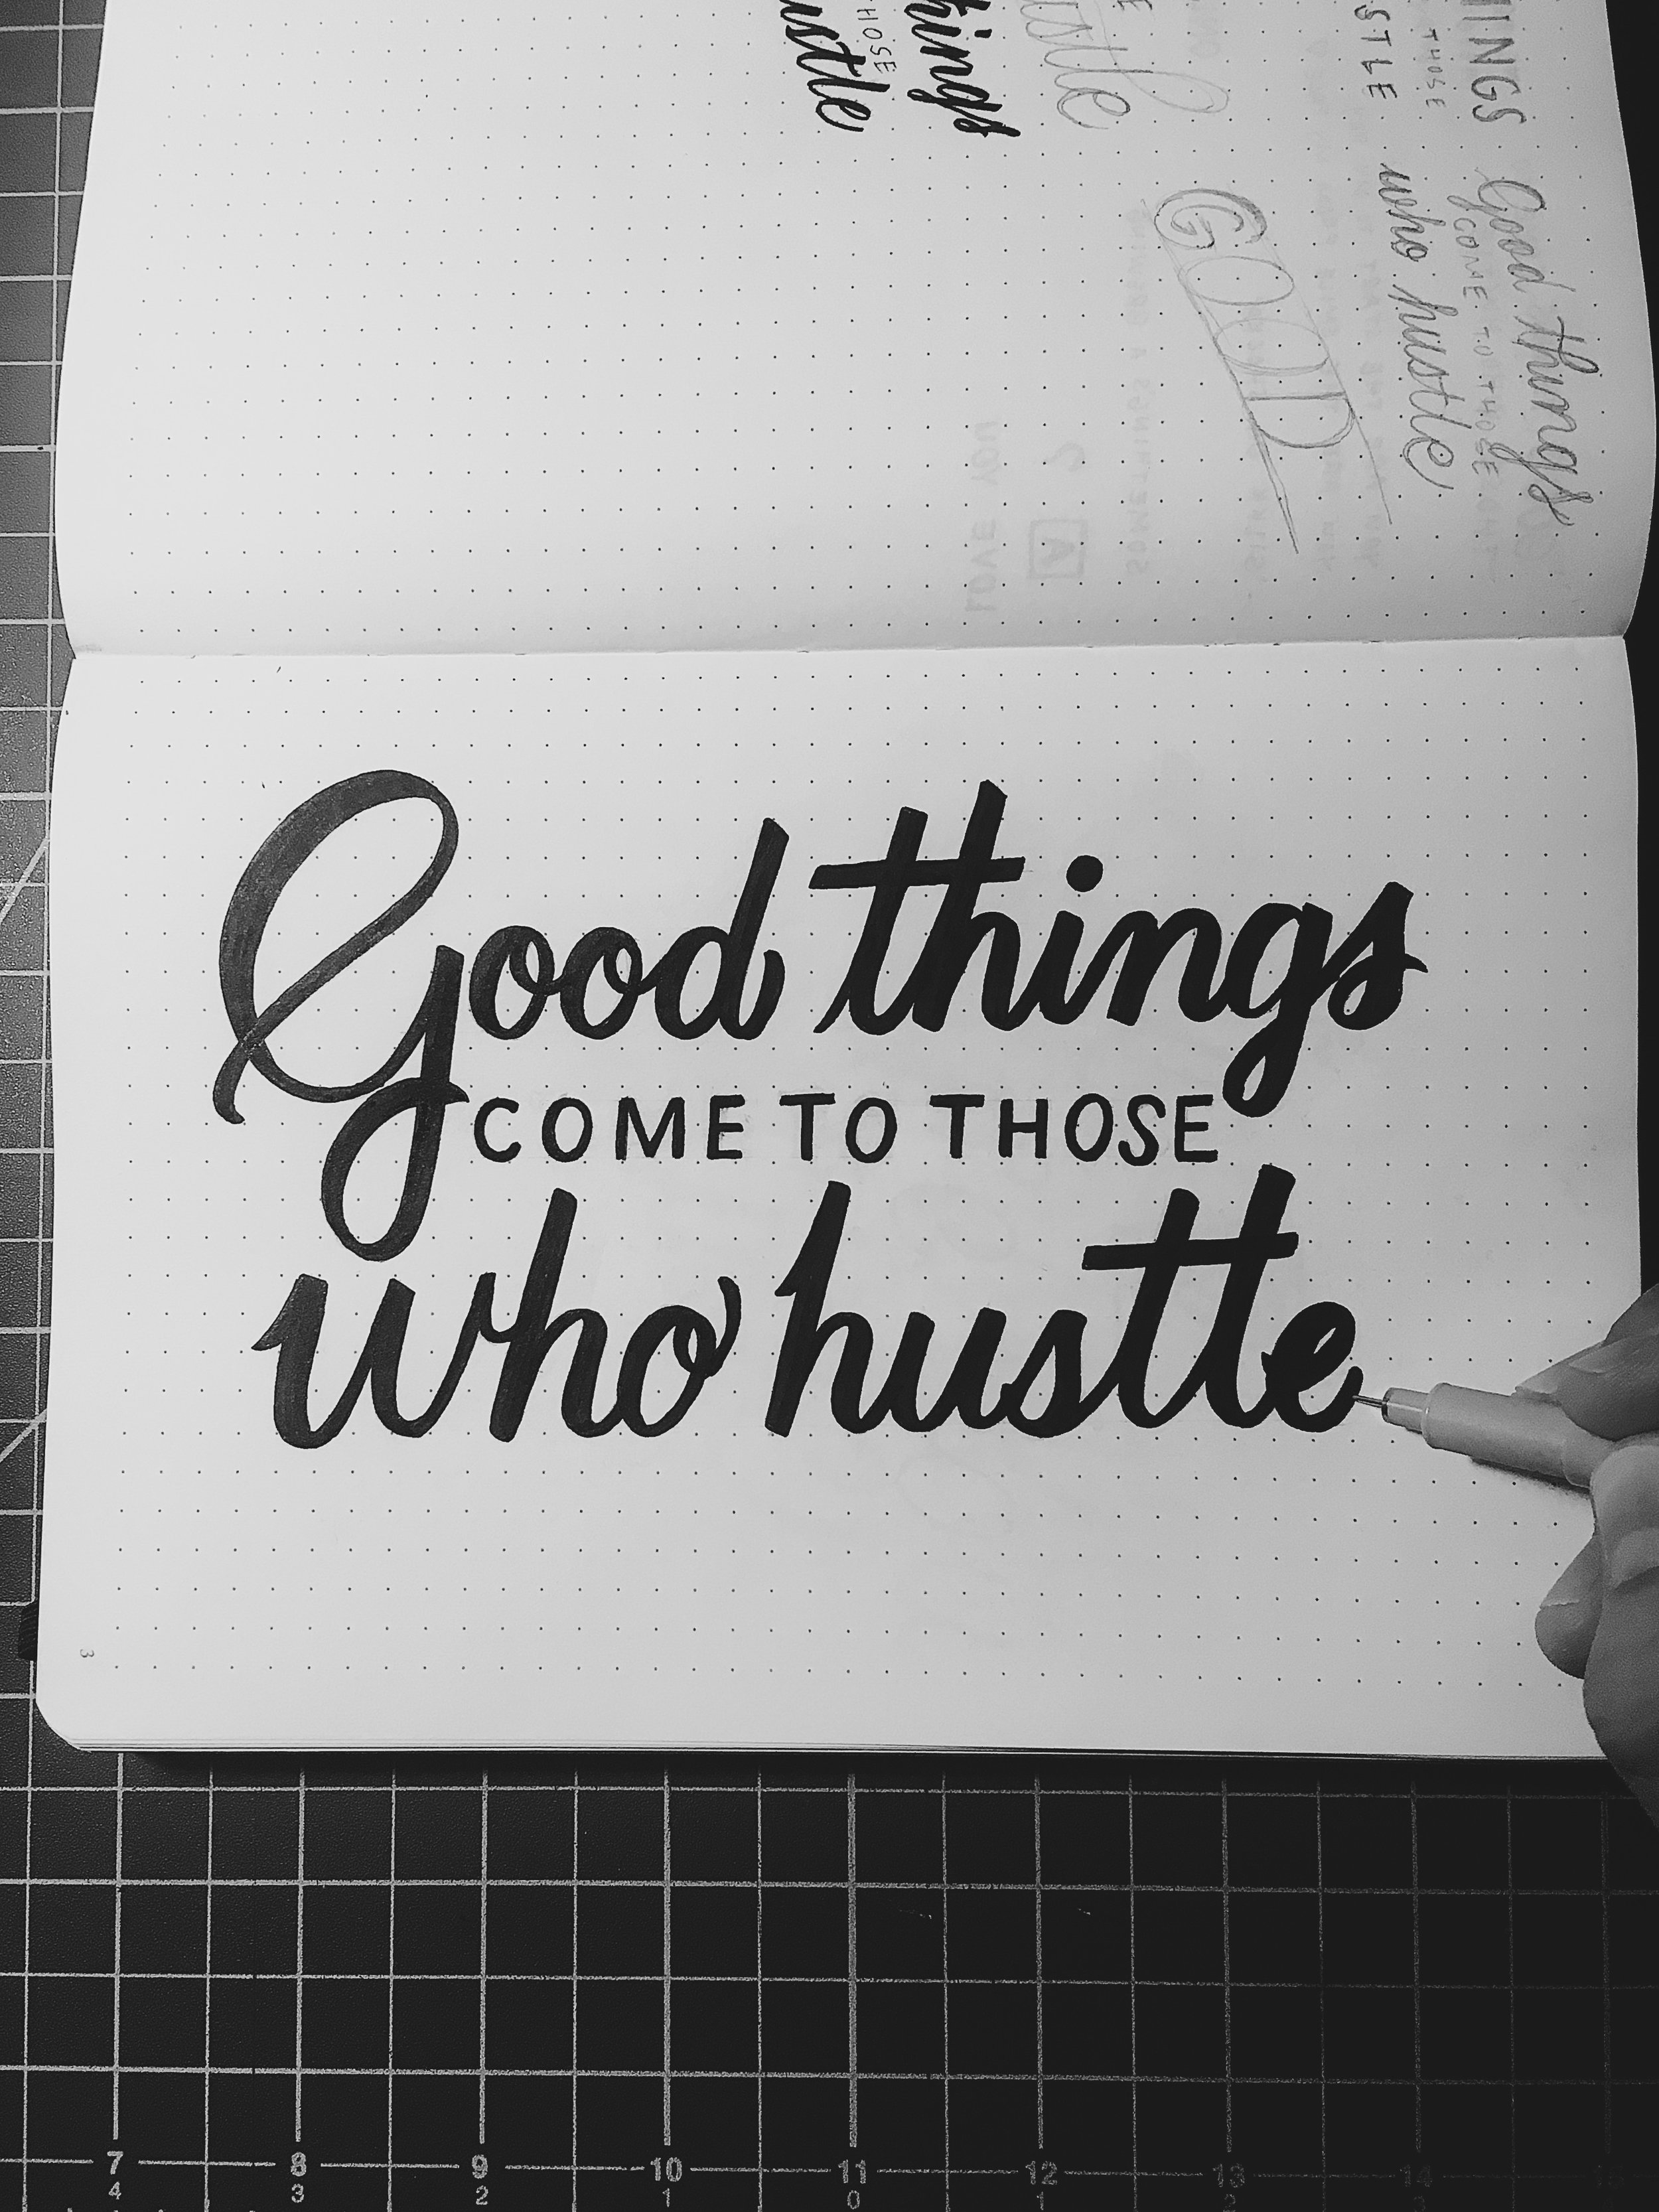 ustle
HOSE
hings
stle
E
STLE
THOSE
INGS
GOOD
Good things
COME TO THOSE
who hustle
LOVE YOU
A
?
Good things
COME TO THOSE
who hustle
3
7 8 9 10 11 12 13 14
4 3 2 1 0 1 2 3